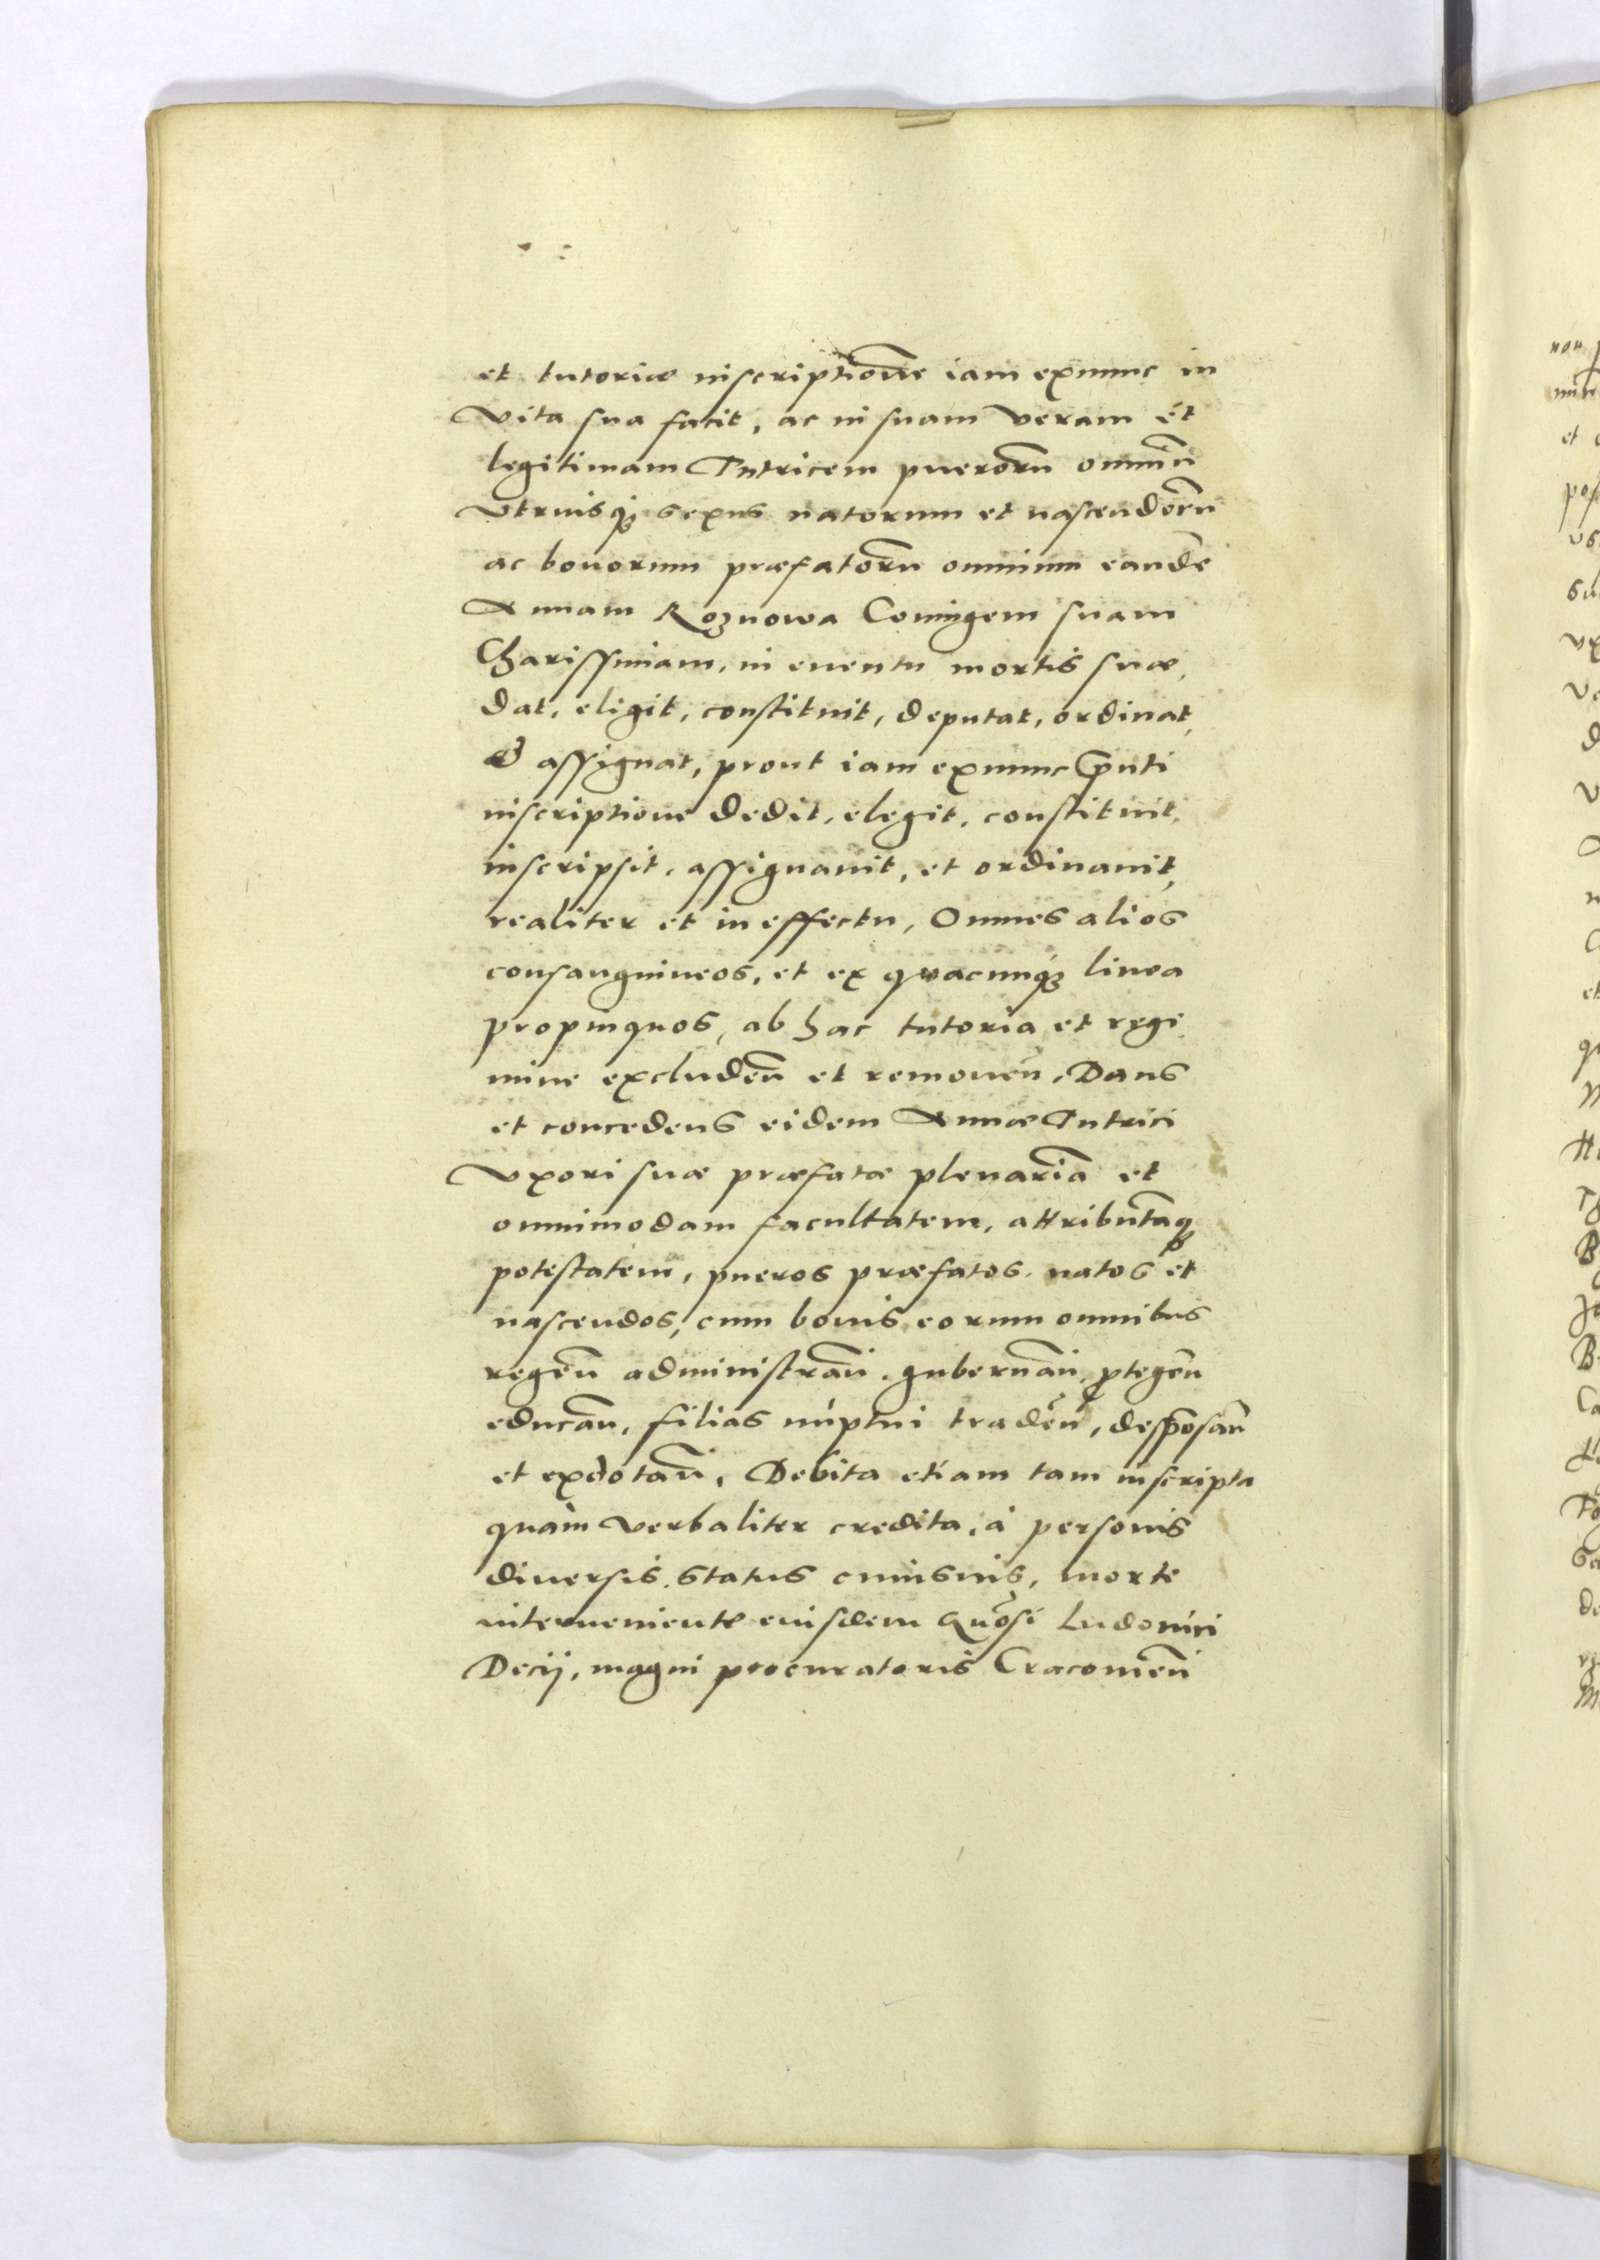 et tutoriæ inscriptionẽ iam exnunc in
vita sua facit, ac in suam veram et
legitimam Tutricem puerorũ omniũ
vtriusq; sexus natorum et nascendorũ
ac bonorum præfatorũ omnium eandẽ
Annam Roznowa Coniugem suam
Charissimam, in euentu mortis suæ,
dat, eligit, constituit, deputat, ordinat,
& assignat, prout iam exnunc p̃nti
inscriptione dedit, elegit, constituit,
inscripsit, assignauit, et ordinauit,
realiter et in effectu, Omnes alios
consanguineos, et ex quacunq; linea
propinquos, ab hac tutoria et regi
mine excludeñ et remoueñ, Dans
et concedens eidem Annæ Tutrici
Vxori suæ præfatæ plenariã et
omnimodam facultatem, attributãq;
potestatem, pueros præfatos, natos et
nascendos, cum bonis eorum omnibus
regeñ administrañ, gubernañ, ꝓtegeñ
educañ, filias núptui tradeñ, desponsañ
et exdotañ, Debita etiam tam inscripta
quàm verbaliter credita, à personis
diuersis, status cuiusuis, morte
interueniente eiusdem G̃nosi Ludouici
Decij, magni procuratoris Cracouieñ